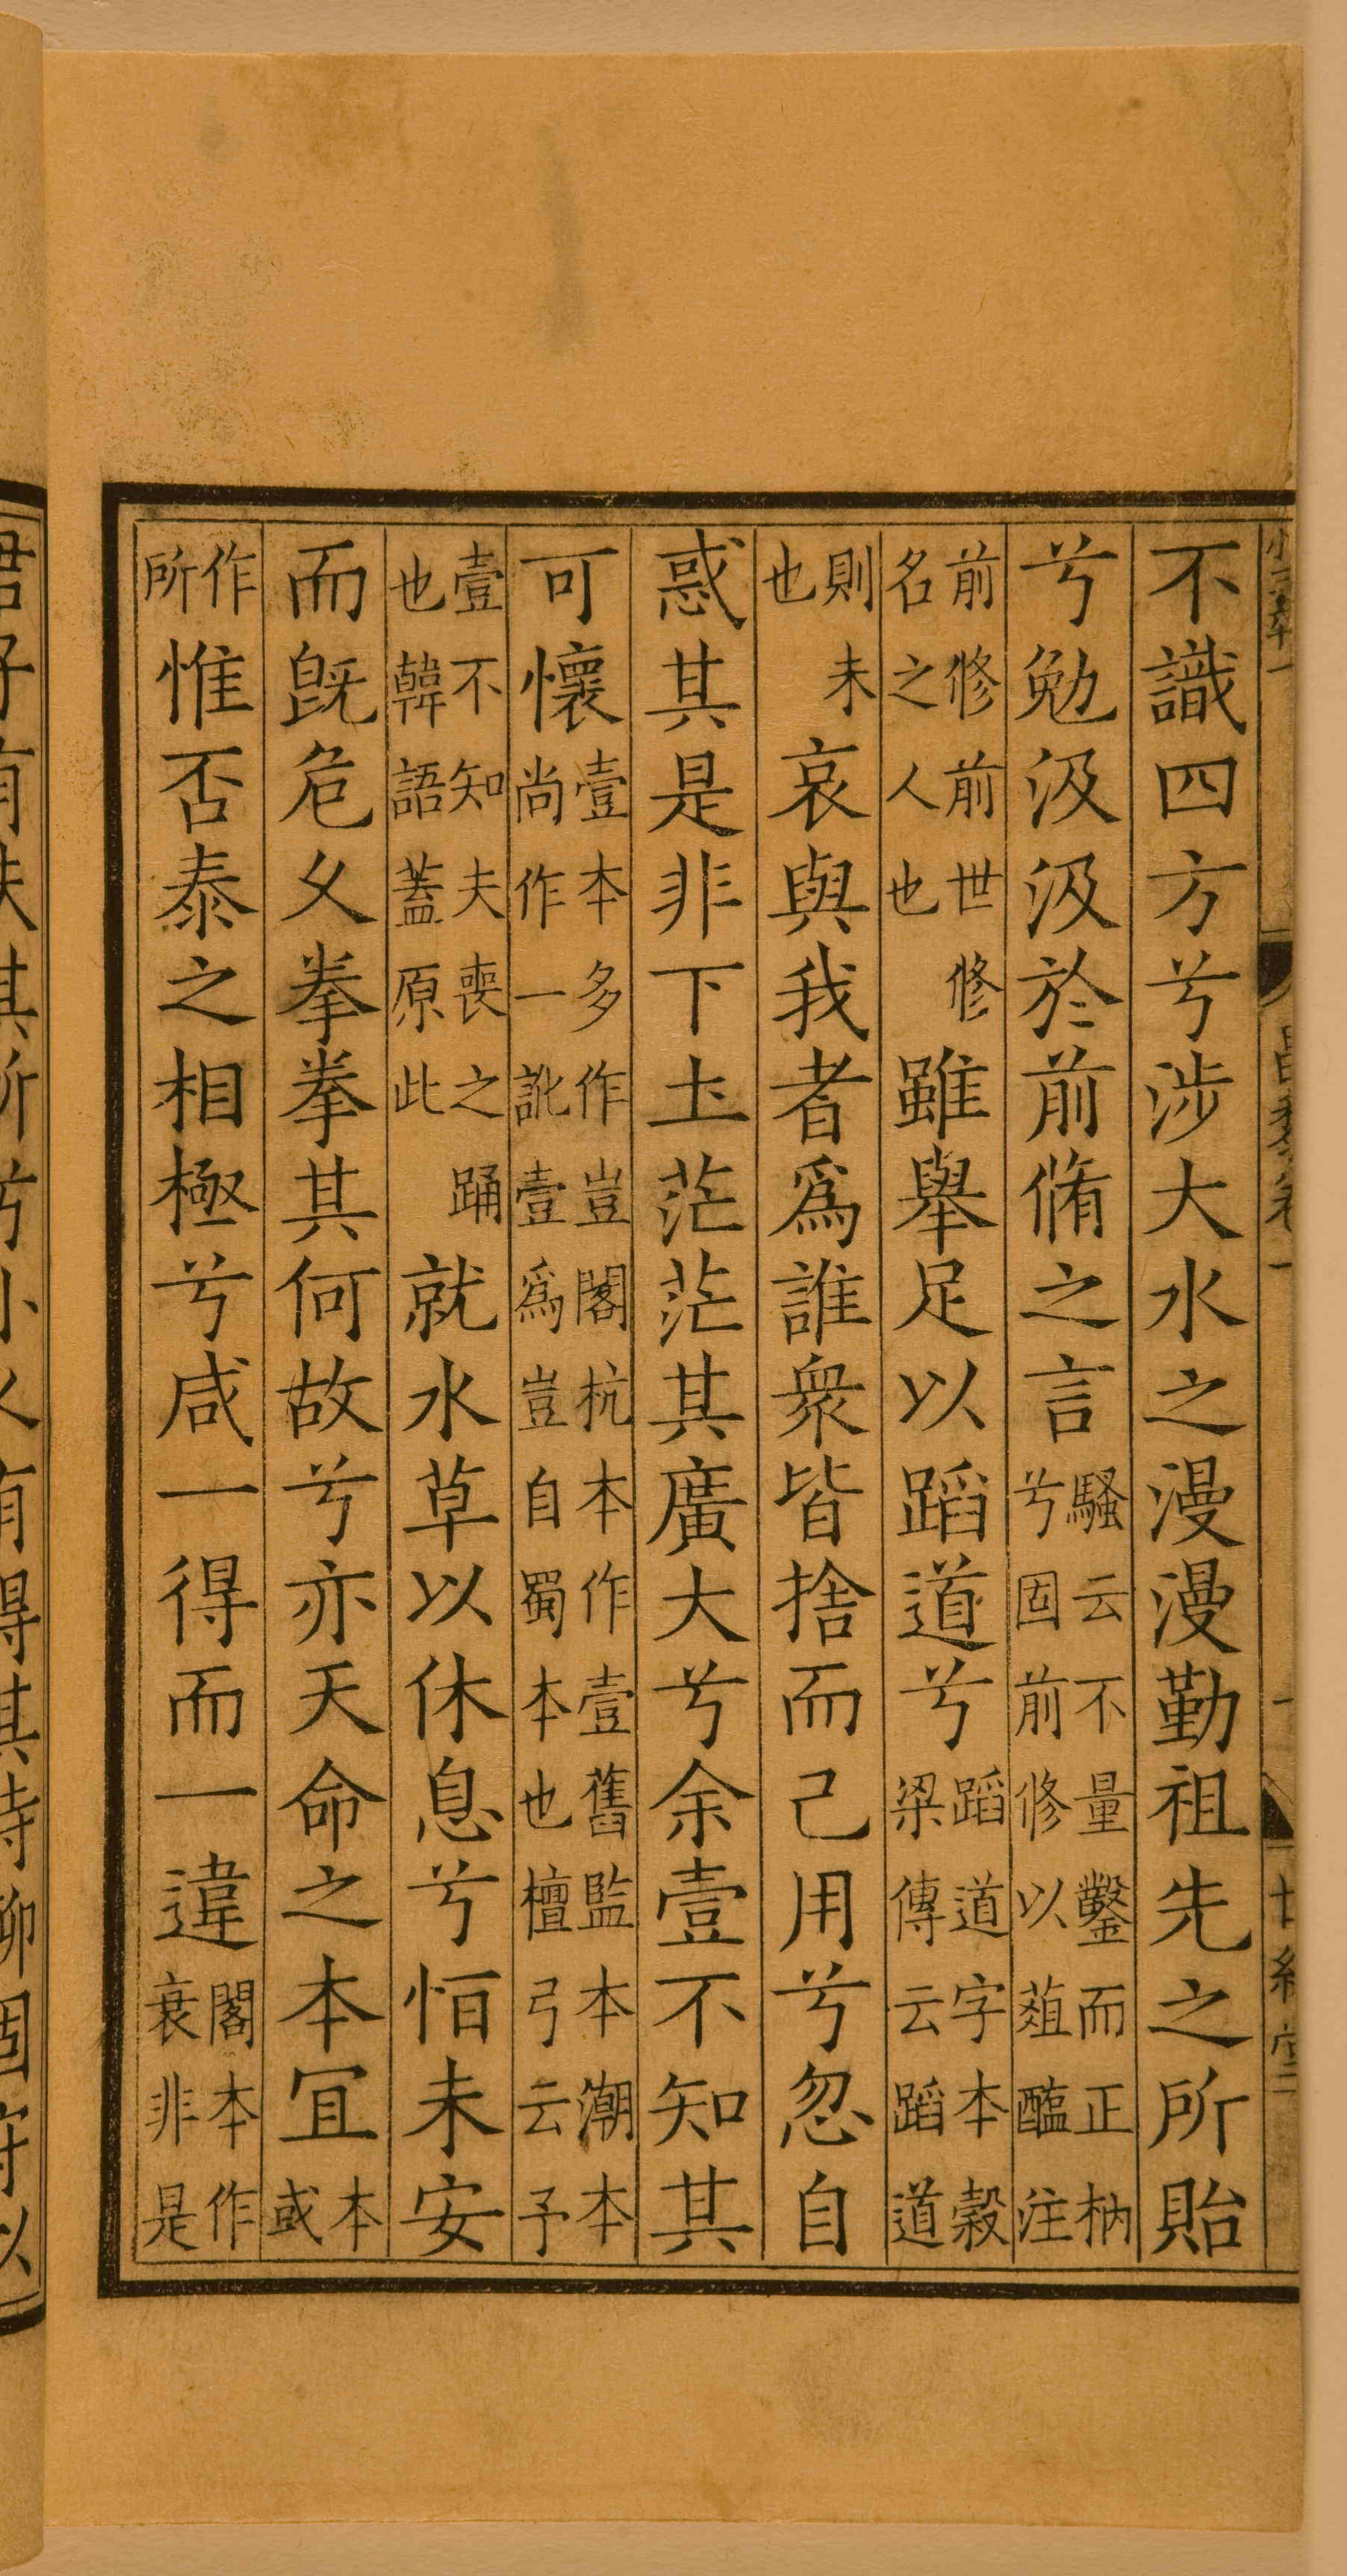 不識四方兮涉大水之漫漫勤祖先之所貽
兮勉汲汲於前脩之言騷云不量鑿而正枘兮固前修以葅醢注
前修前世修名之人也雖舉足以蹈道兮蹈道字本榖梁傳云蹈道
則未也哀與我者爲誰衆皆捨而己用兮忽自
惑其是非下土茫茫其廣大兮余壹不知其
可懷壹本多作豈閣杭本作壹舊監本潮本尚作一訛壹爲豈自蜀本也檀弓云予
壹不知夫喪之踊也韓語蓋原此就水草以休息兮恒未安
而旣危久拳拳其何故兮亦天命之本宜本或
作所惟否泰之相極兮咸一得而一違閣本作衰非是
君子有失其所兮小人有得其時聊固守以